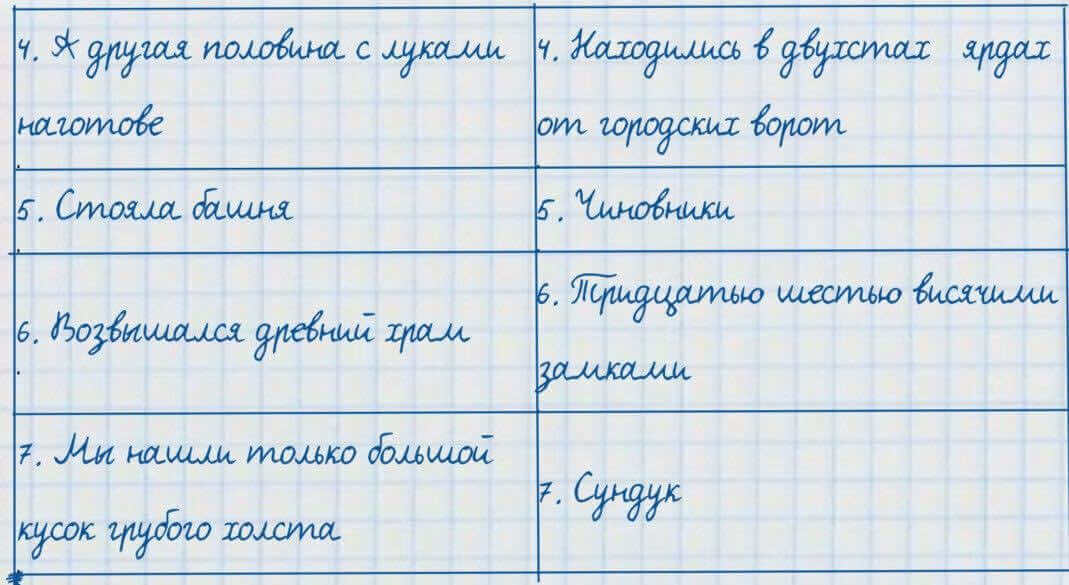 4. А другая половина с луками
наготове
4. Находились в двухстах ярдах
от городских ворот
5. Стояла башня
5. Чиновники
6. Возвышался древний храм
6. Тридцатью шестью висячими
замками
7. Мы нашли только большой
кусок грубого холста
7. Сундук